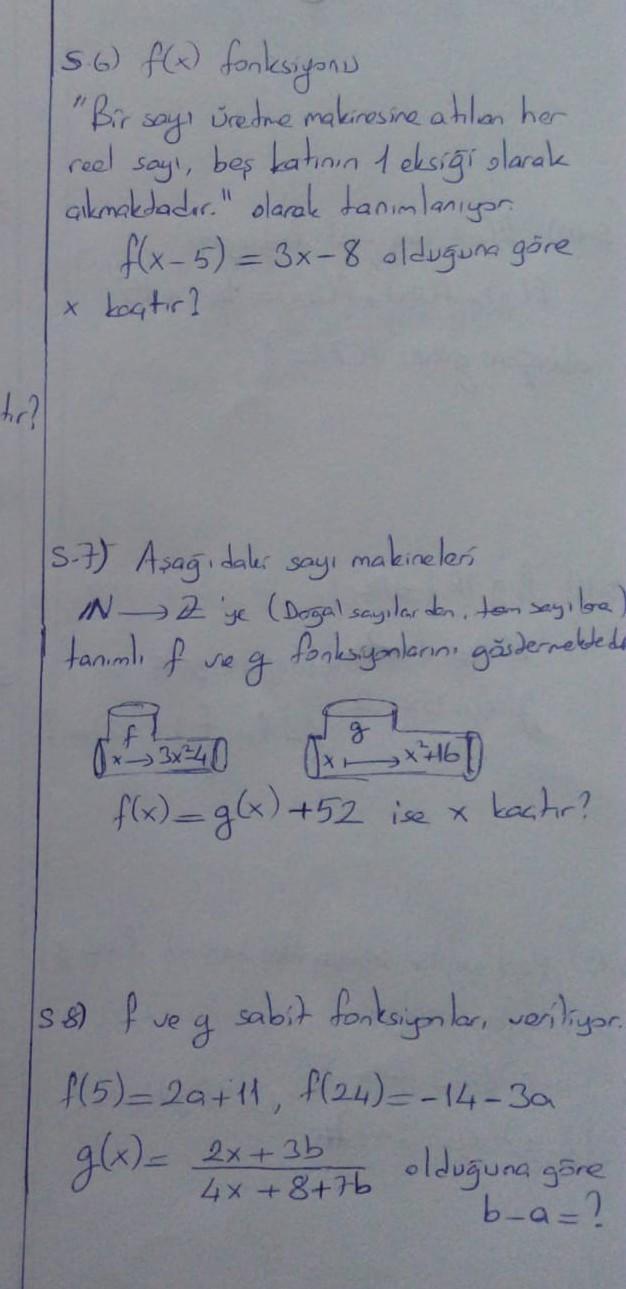 S.6) f(x) fonksiyonu
"Bir sayı üretme makinesine atılan her
reel sayı, beş katının 1 eksiği olarak
çıkmaktadır." olarak tanımlanıyor.
f(x-5) = 3x-8 olduğuna göre
x kaçtır?
tır?
S.7) Aşağıdaki sayı makineleri
N → Z 'ye (Doğal sayılardan, tam sayılara)
tanımlı f ve g fonksiyonlarını göstermektedir
f g
x → 3x²-4 x ↦ x²+16
f(x) = g(x) + 52 ise x kaçtır?
S 8) f ve g sabit fonksiyonları veriliyor.
f(5) = 2a+11, f(24) = -14-3a
g(x) = (2x + 3b) / (4x + 8 + 7b) olduğuna göre
b-a = ?